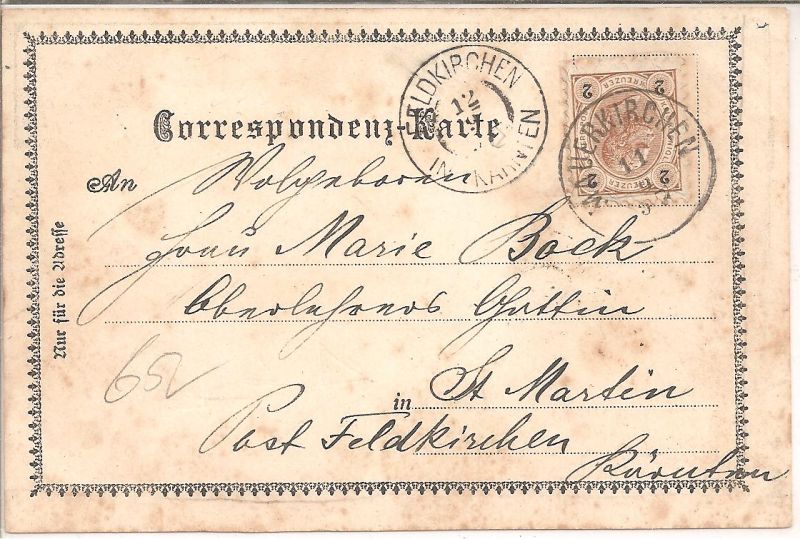 Correspondenz-Karte
FELDKIRCHEN
12
IN KÄRNTEN
2 2
KREUZER
2 2
MAUERKIRCHEN
11
An Wolgeboren
Frau Marie Bock
Oberlehrers Gattin
in St Martin
Post Feldkirchen
Kärnten
Nur für die Adresse
652